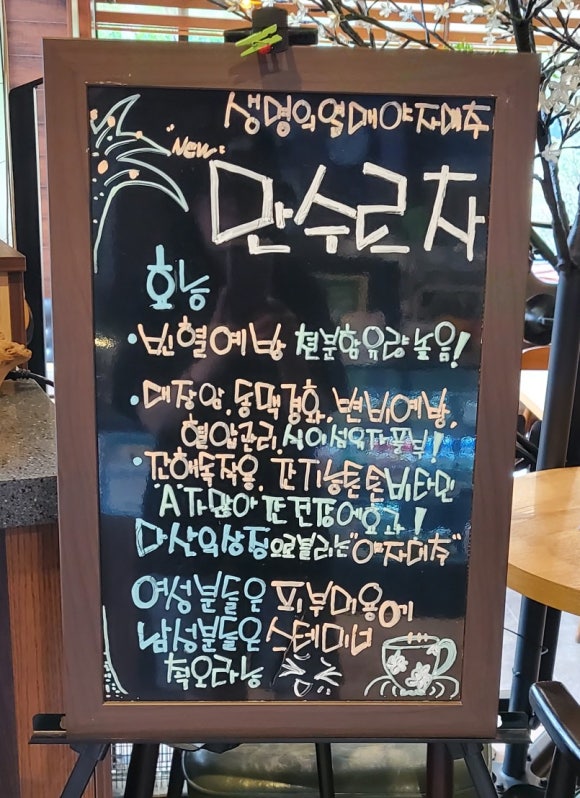 생명의열매야자대추
"New"
만수르차
효능
•빈혈예방 철분함유량높음!
•대장암.동맥경화.변비예방.
혈압관리.식이섬유가풍부!
•간해독작용. 간기능튼튼비타민
A가많아 간건강에효과!
마산의상징으로불리는"야자대추"
여성분들은 피부미용에
남성분들은 스테미너
쵝오라능